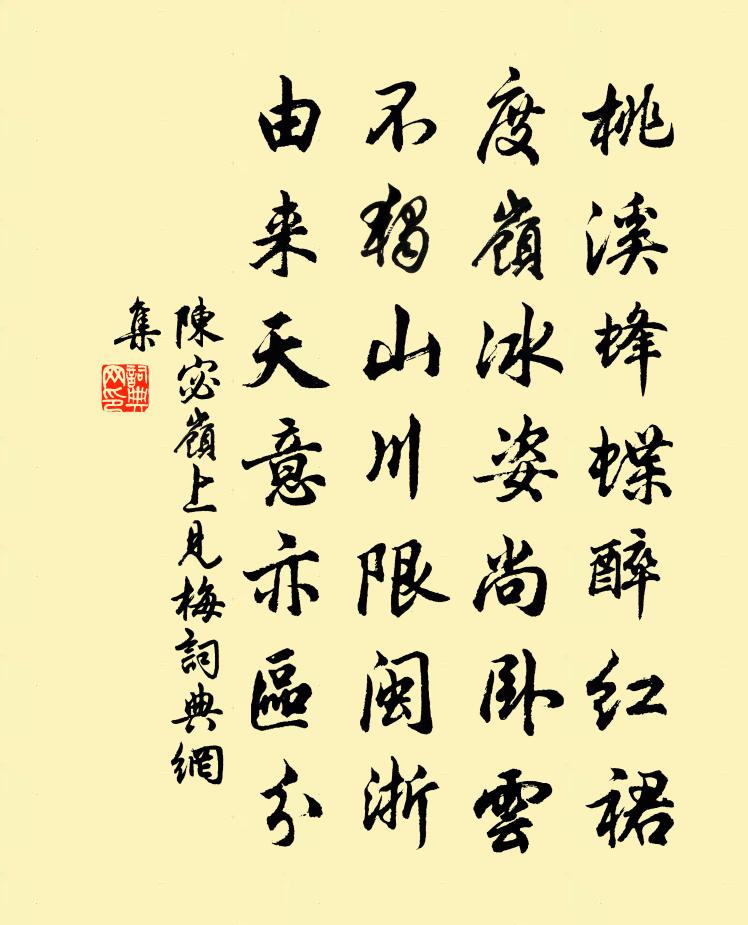 桃溪蜂蝶醉红裙
度嶺冰姿尚卧雲
不獨山川限閩浙
由来天意亦區分
陳宓嶺上見梅詞典網
集
詞典
网印